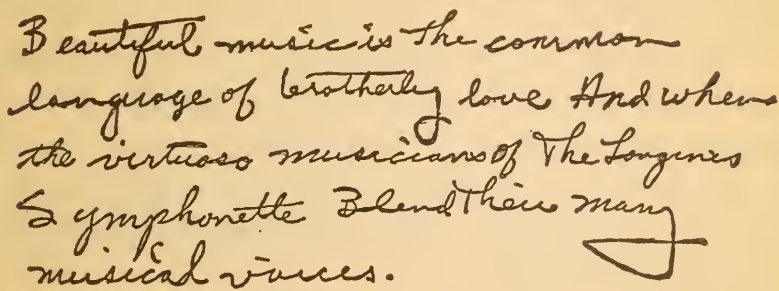 Beautiful music is The common
language of brotherly love And when
the virtuoso musicians of The Longines
Symphonette Blend Their many
musical voices.